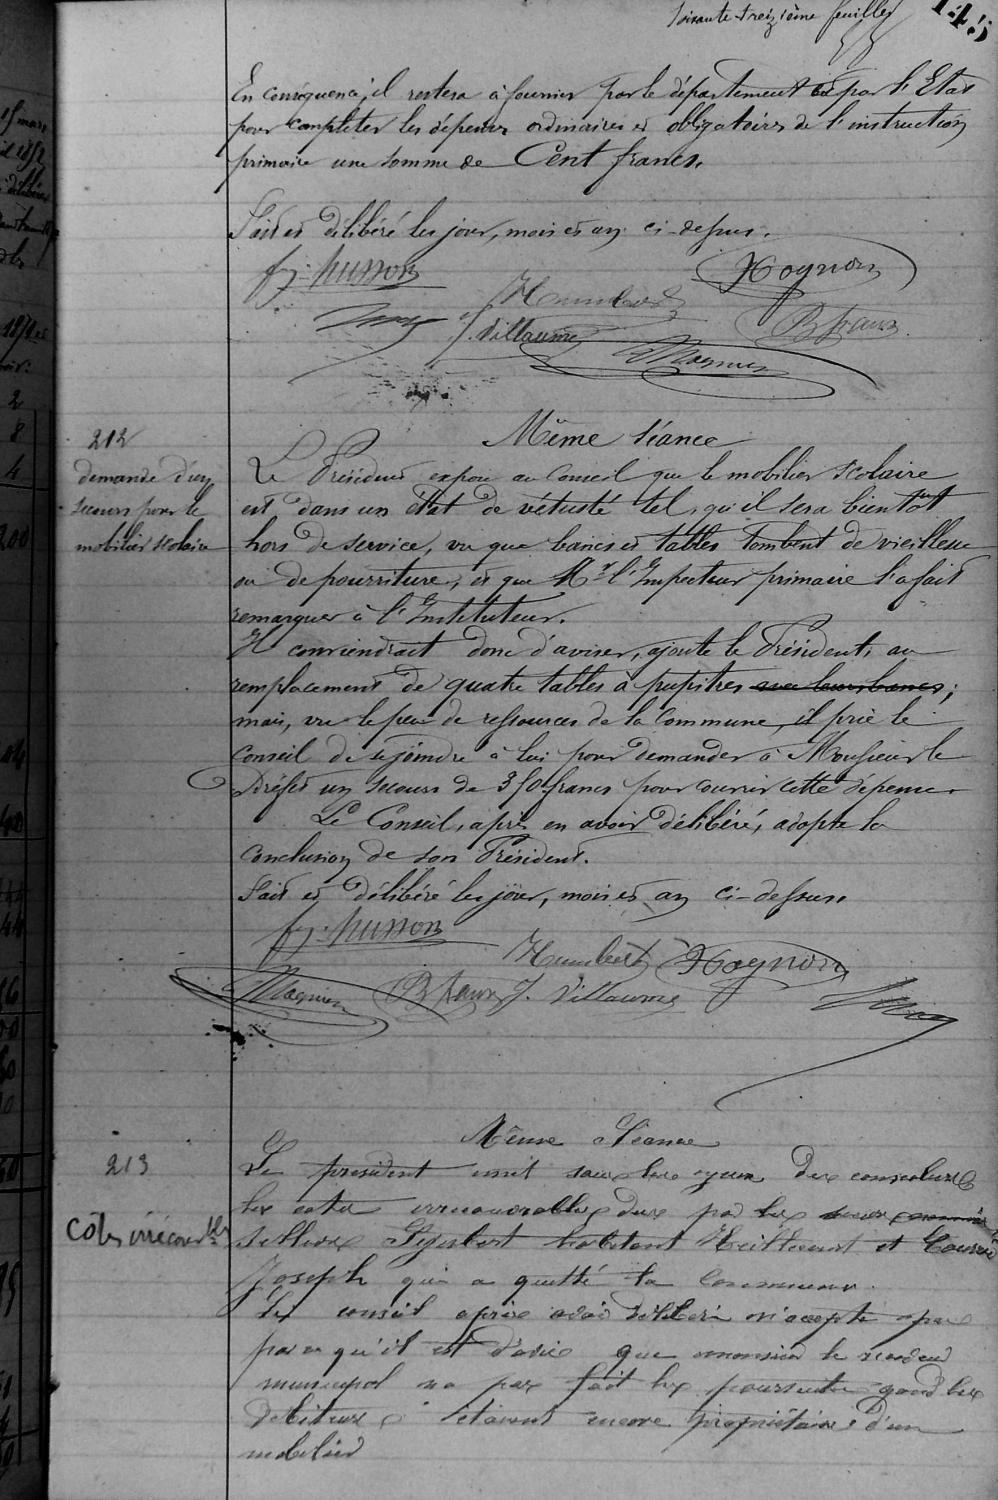 soixante-treizième feuillet
145
En conséquence, il restera à fournir par le département et par l'Etat
pour completer les dépenses ordinaires et obligatoires de l'instruction
primaire une somme de Cent francs.
Fait et délibéré les jour, mois et an ci-dessus.
fj. husson
Hognon
Humbert
J. Villaume
B franc
Magnien
Même séance
212
demande d'un
secours pour le
mobilier scolaire
Le Président expose au Conseil que le mobilier scolaire
est dans un état de vétusté tel, qu'il sera bientôt
hors de service, vu que bancs et tables tombent de vieillesse
ou de pourriture, et que Mr l'Inspecteur primaire l'a fait
remarquer à l'Instituteur.
Il conviendrait donc d'aviser, ajoute le Président, au
remplacement de quatre tables à pupitres avec leurs bancs;
mais, vu le peu de ressources de la Commune, il prie le
Conseil de se joindre à lui pour demander à Monsieur le
Préfet un secours de 350 francs pour couvrir cette dépense.
Le Conseil, après en avoir délibéré, adopte la
conclusion de son Président.
Fait et délibéré les jour, mois et an ci-dessus.
fj. husson
Humbert
Hognon
Magnien
B franc
J. Villaume
Même Séance
213
Côtes irrécouvrables
Le president mit sous les yeux des conseilers
les cotes irrecouvrables dues par les
Sigisbert habitant et
Joseph qui a quitté la Commune.
Le conseil après avoir deliberé n'accepte pas
par ce qu'il est d'avis que monsieur le receveur
municipal na pas fait les poursuites quand les
debiteurs étaient encore propriétaires d'un
mobilier